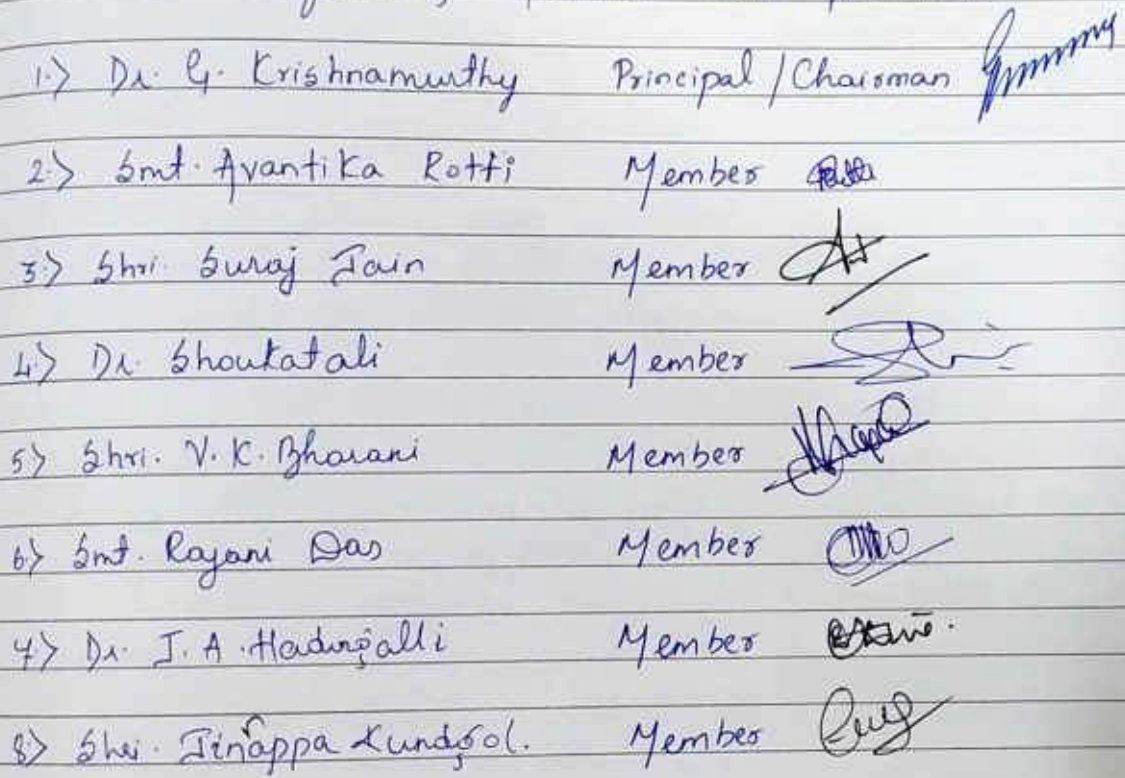 1.) Dr. G. Krishnamurthy Principal / Chairman
2.) Smt. Avantika Rotti Member
3.) Shri. Suraj Jain Member
4) Dr. Shoukatali Member
5) Shri. V. K. Bharani Member
6) Smt. Rajani Das Member
7) Dr. J. A. Hadagalli Member
8) Shri. Jinappa Kundgol. Member